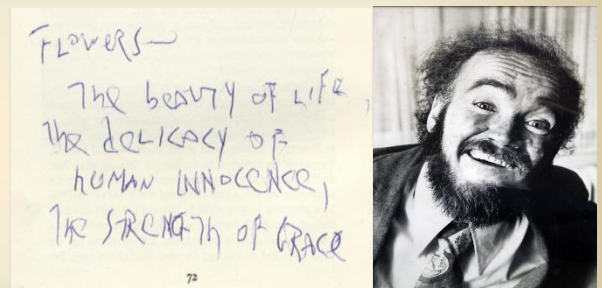 FLOWERS—
The beauty of life,
The delicacy of
human innocence,
The strength of grace
72